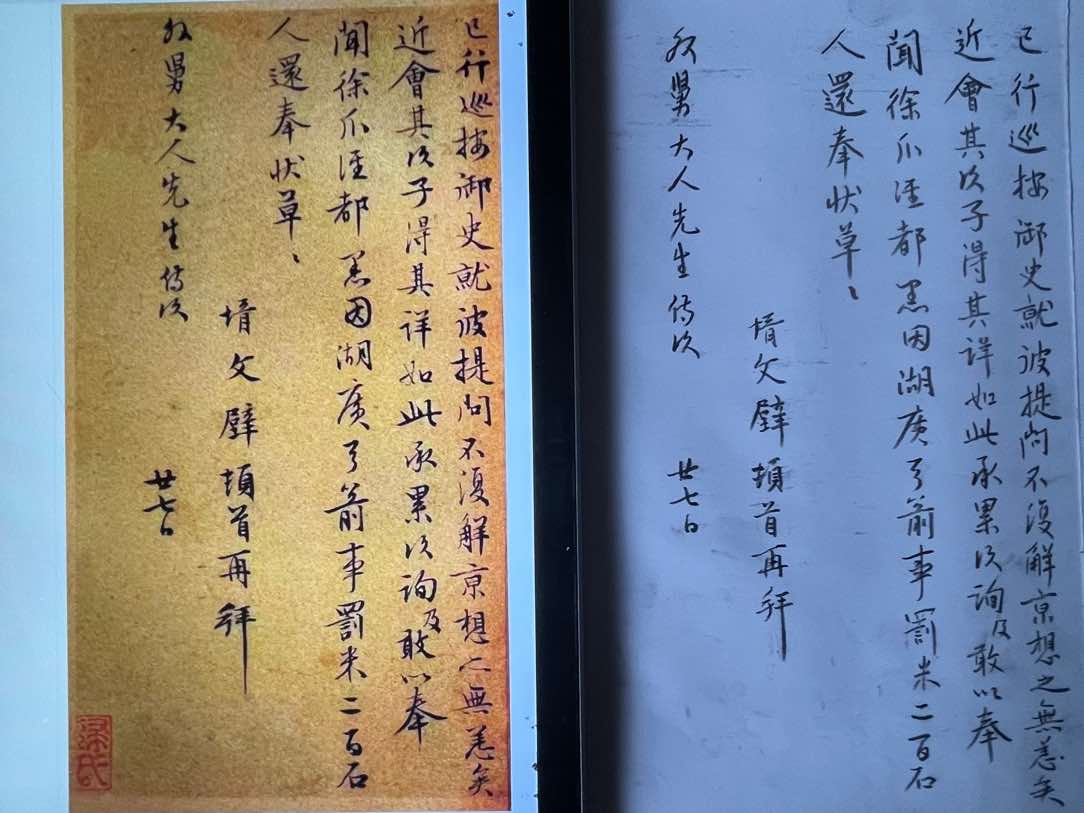 已行巡按御史就被提問不復解京想之無恙矣
近會其次子得其詳如此承累次詢及敢以奉
聞徐瓜涇都憲因湖廣弓箭事罰米二百石
人還奉狀草〻
壻文壁頓首再拜
外舅大人先生侍次
廿七日
梁氏
已行巡按御史就被提問不復解京想之無恙矣
近會其次子得其詳如此承累次詢及敢以奉
聞徐瓜涇都憲因湖廣弓箭事罰米二百石
人還奉狀草〻
壻文壁頓首再拜
外舅大人先生侍次
廿七日